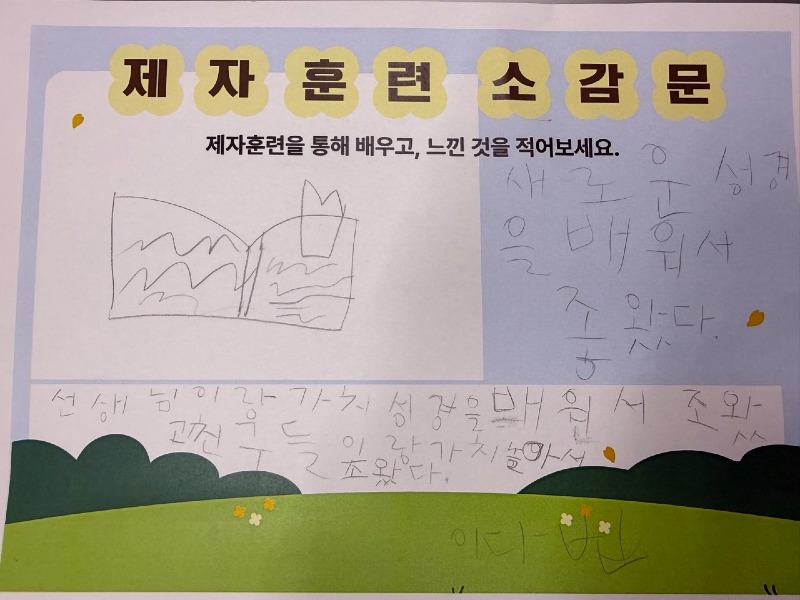 제자훈련 소감문
제자훈련을 통해 배우고, 느낀 것을 적어보세요.
새로운 성경
을 배워서
좋왔다.
선생님이랑 가치 성경을 배워서 조왔
고 친구들이랑 가치 놀아서
조왔다.
이다빈